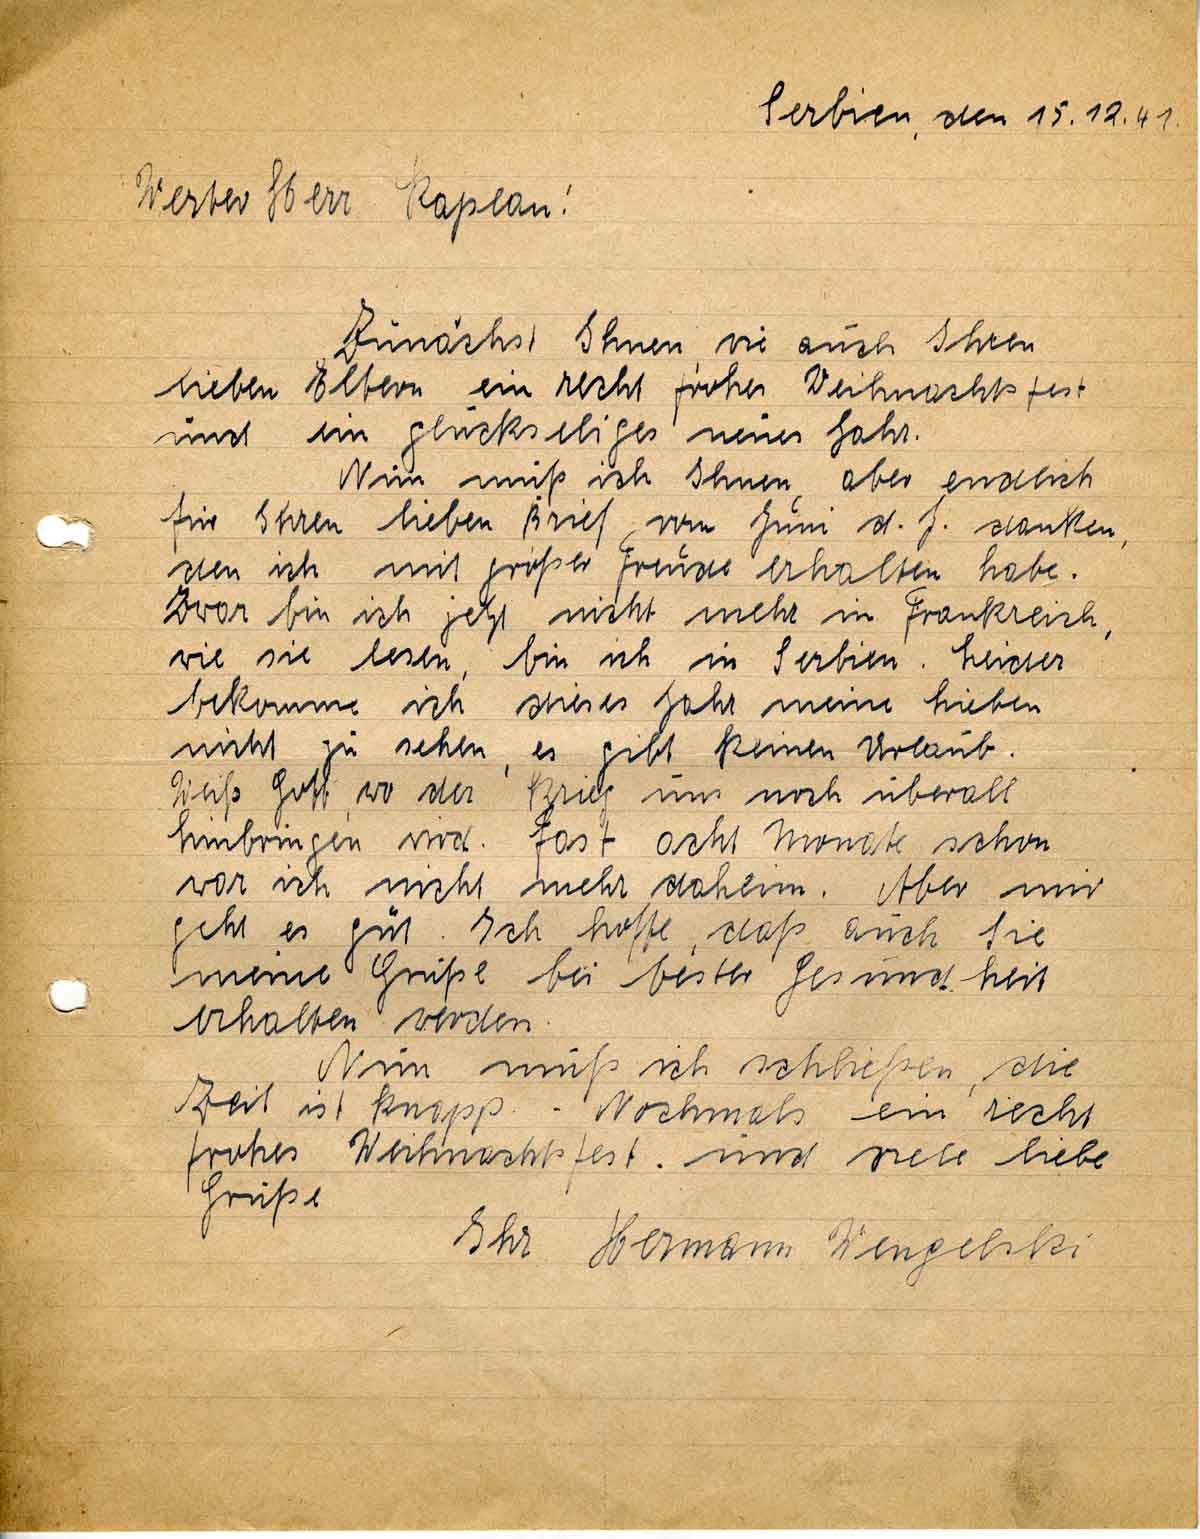 Serbien, den 15.12.41.
Werter Herr Kaplan!
Zunächst Ihnen wie auch Ihren
lieben Eltern ein recht frohes Weihnachtsfest
und ein glückseliges neues Jahr.
Nun muß ich Ihnen, aber endlich
für Ihren lieben Brief vom Juni d. J. danken,
den ich mit großer Freude erhalten habe.
Zwar bin ich jetzt nicht mehr in Frankreich,
wie sie lesen, bin ich in Serbien. Leider
bekomme ich dieses Jahr meine Lieben
nicht zu sehen, es gibt keinen Urlaub.
Weiß Gott, wo der Krieg uns noch überall
hinbringen wird. Fast acht Monate schon
war ich nicht mehr daheim. Aber mir
geht es gut. Ich hoffe, daß auch Sie
meine Grüße bei bester Gesundheit
erhalten werden.
Nun muß ich schließen, die
Zeit ist knapp. - Nochmals ein recht
frohes Weihnachtsfest. und viele liebe
Grüße
Ihr Hermann Wengelski